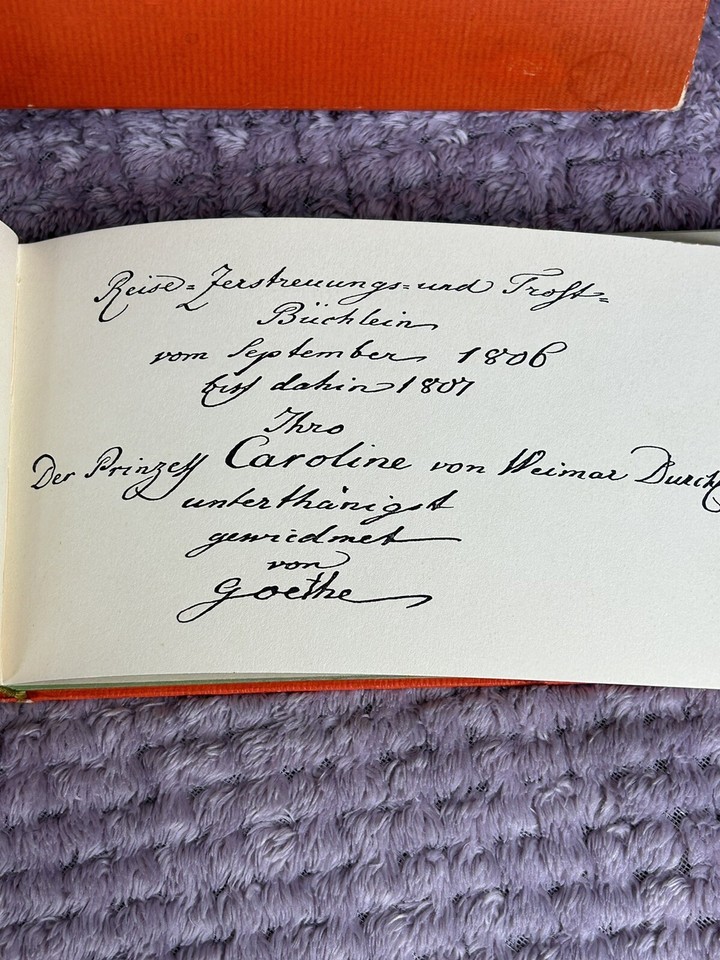 Reise=Zerstreuungs=und Trost=
Büchlein
vom September 1806
biss dahin 1807
Ihro
Der Prinzess Caroline von Weimar Durch
unterthänigst
gewiedmet
von
Goethe